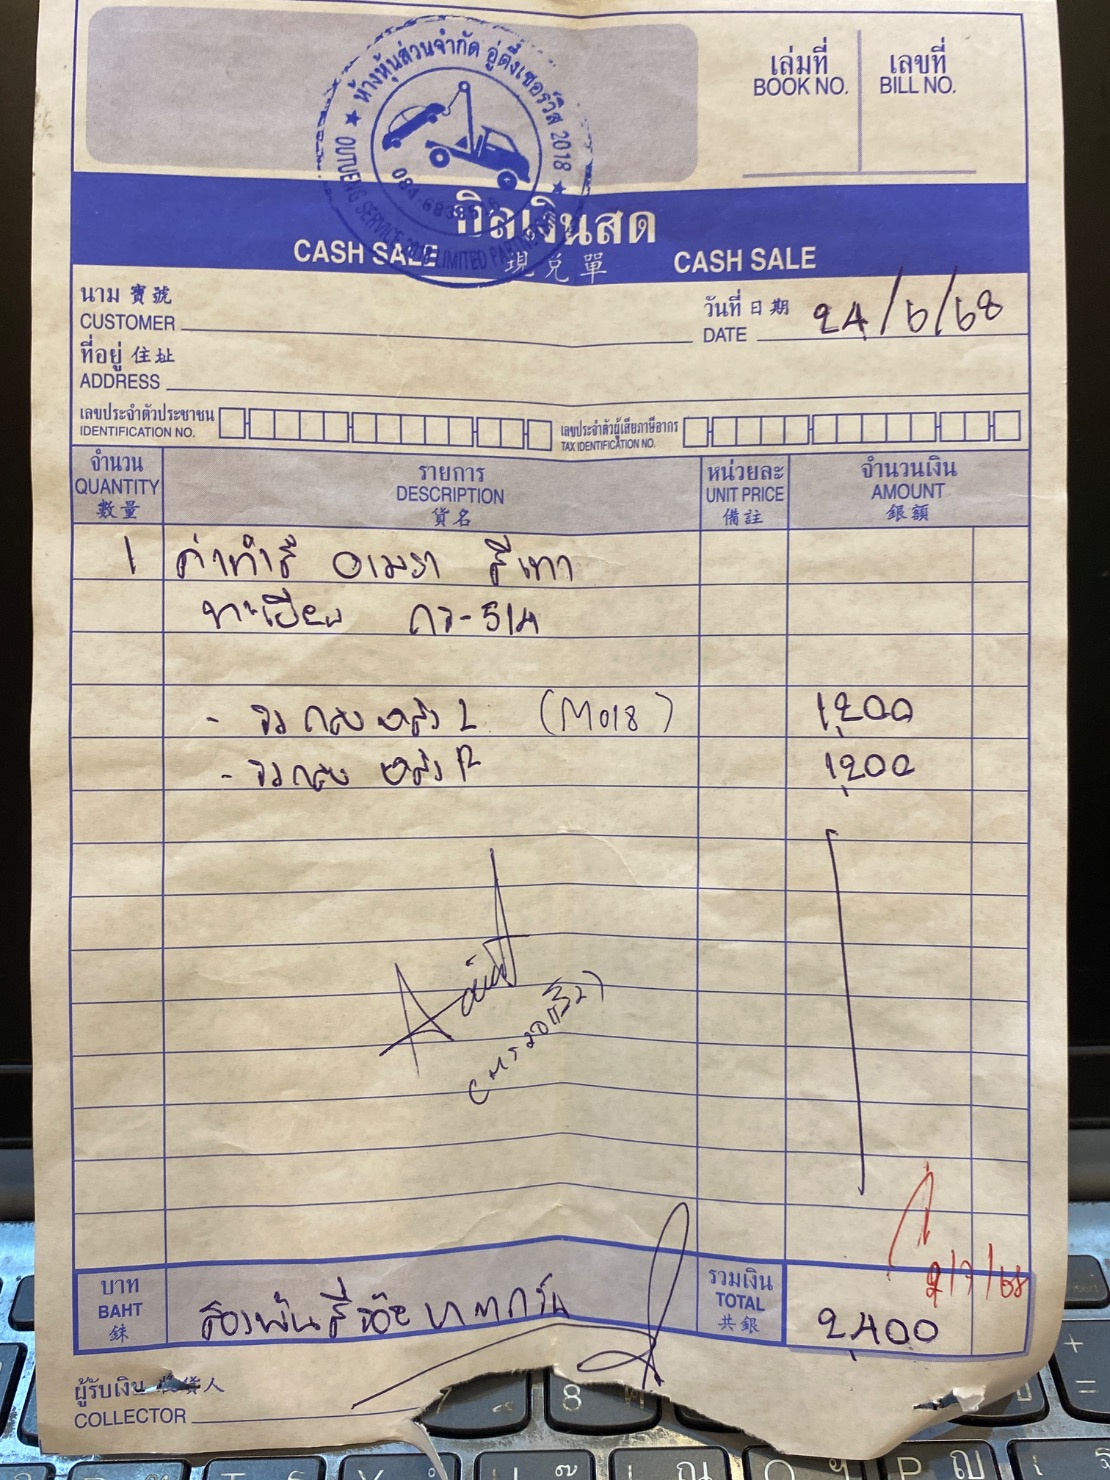 ห้างหุ้นส่วนจำกัด อู่ตึ๋งเซอร์วิส 2018
OUTUENG SERVICE 2018 LIMITED PARTNERSHIP
เล่มที่ เลขที่
BOOK NO. BILL NO.
บิลเงินสด
CASH SALE 現兑單 CASH SALE
นาม 寶號
CUSTOMER
วันที่ 日期
DATE 24/6/68
ที่อยู่ 住址
ADDRESS
เลขประจำตัวประชาชน
IDENTIFICATION NO.
เลขประจำตัวผู้เสียภาษีอากร
TAX IDENTIFICATION NO.
จำนวน รายการ หน่วยละ จำนวนเงิน
QUANTITY DESCRIPTION UNIT PRICE AMOUNT
數量 貨名 備註 銀額
1 ค่าทำสี อเมรา สีเทา
ทะเบียน กว-514
- L (M018) 1,200
- R 1,200
2/7/68
บาท สองพันสี่ร้อยบาทถ้วน รวมเงิน
BAHT TOTAL 2,400
銖 共銀
ผู้รับเงิน 收貨人
COLLECTOR